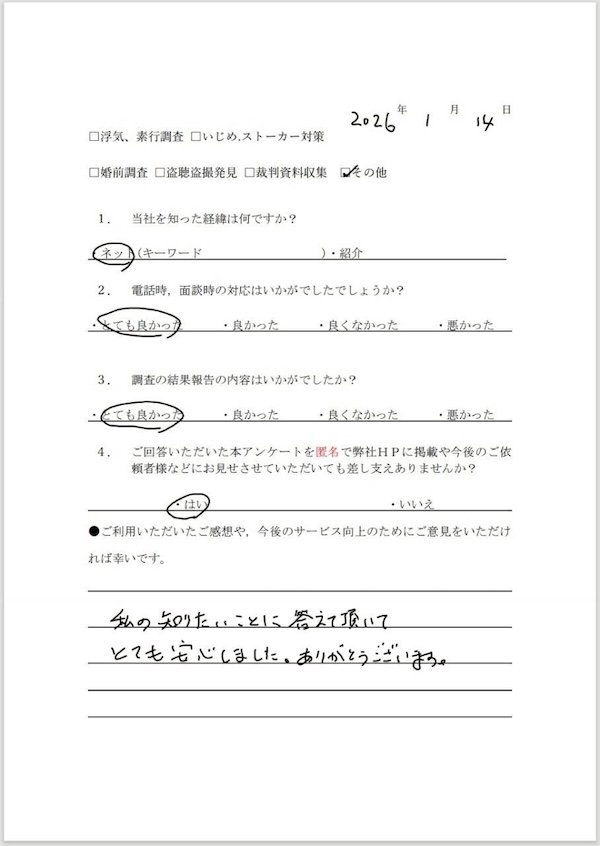 2026年 1月 14日
□浮気、素行調査 □いじめ.ストーカー対策
□婚前調査 □盗聴盗撮発見 □裁判資料収集 ☑その他
１． 当社を知った経緯は何ですか？
・ネット(キーワード )・紹介
２． 電話時，面談時の対応はいかがでしたでしょうか？
・とても良かった ・良かった ・良くなかった ・悪かった
３． 調査の結果報告の内容はいかがでしたか？
・とても良かった ・良かった ・良くなかった ・悪かった
４． ご回答いただいた本アンケートを匿名で弊社ＨＰに掲載や今後のご依
頼者様などにお見せさせていただいても差し支えありませんか？
・はい ・いいえ
●ご利用いただいたご感想や，今後のサービス向上のためにご意見をいただけ
れば幸いです。
私の知りたいことに答えて頂いて
とても安心しました。ありがとうございます。